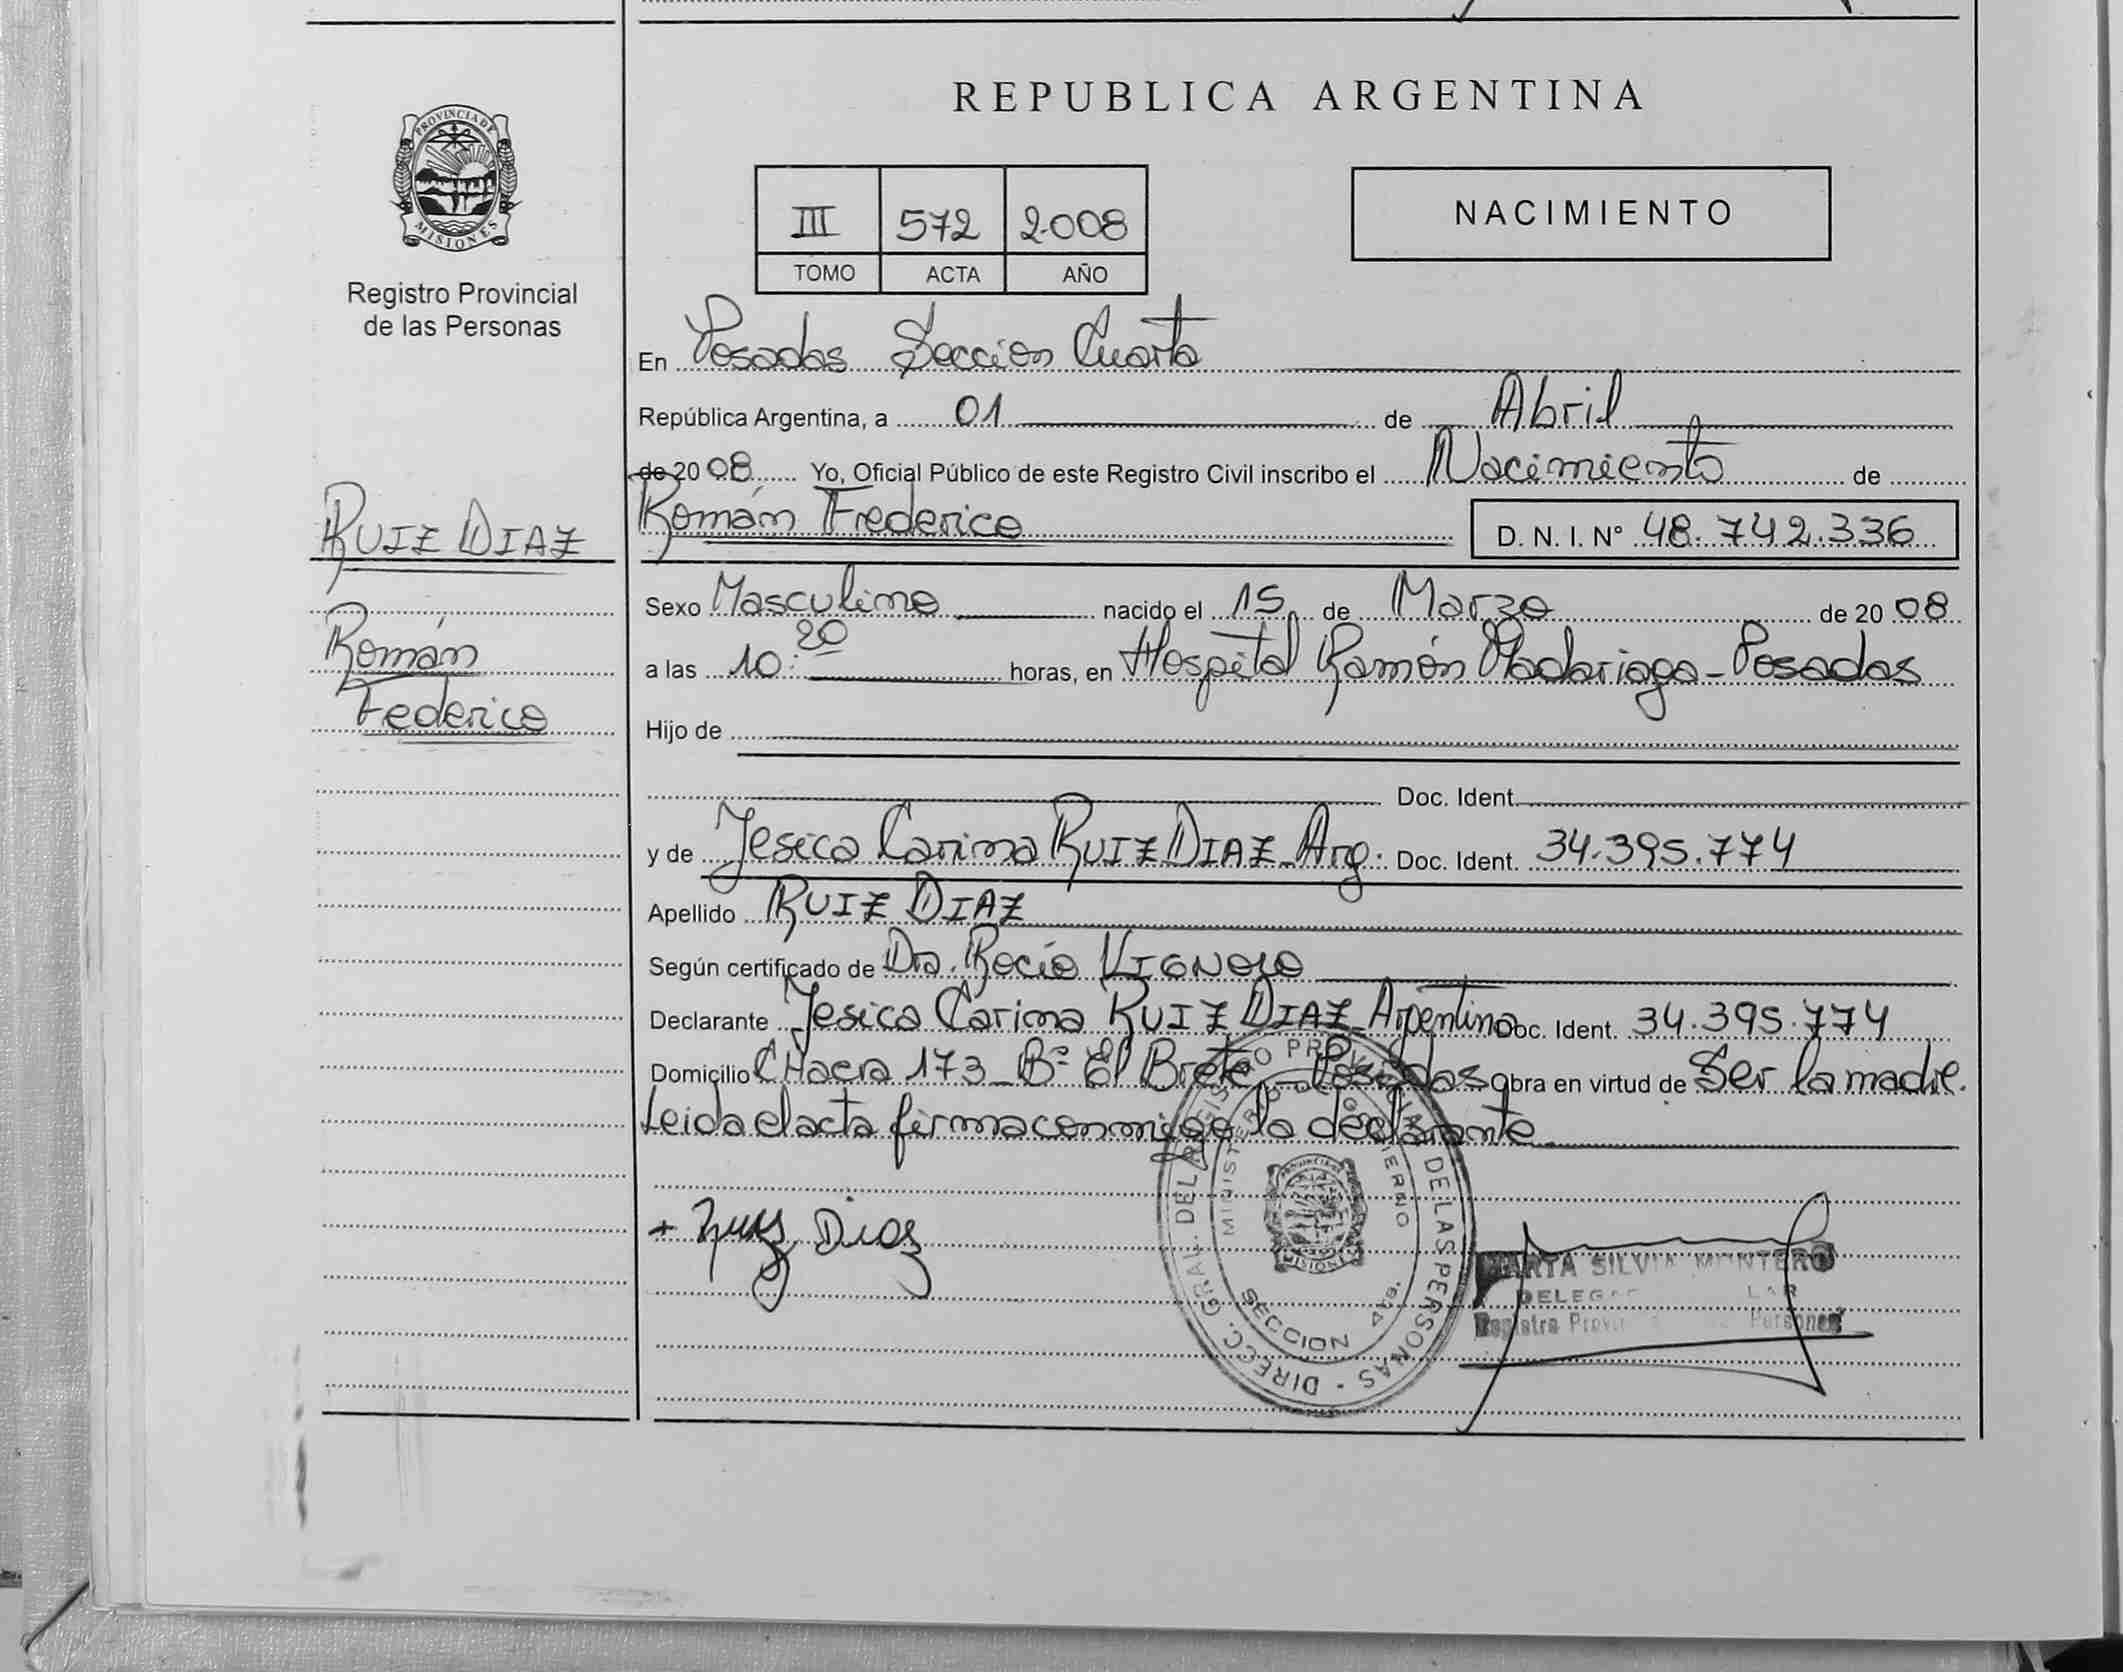 REPUBLICA ARGENTINA
PROVINCIA DE
MISIONES
Registro Provincial
de las Personas
III 572 2008
TOMO ACTA AÑO
NACIMIENTO
En Posadas Sección Cuarta
República Argentina, a 01 de Abril
de 2008 Yo, Oficial Público de este Registro Civil inscribo el Nacimiento de
Román Federico D. N. I. N° 48.742.336
RUIZ DIAZ
Román
Federico
Sexo Masculino nacido el 15 de Marzo de 2008
a las 10:20 horas, en Hospital Ramón Madariaga - Posadas
Hijo de
Doc. Ident.
y de Jesica Carina RUIZ DIAZ - Arg. Doc. Ident. 34.395.774
Apellido RUIZ DIAZ
Según certificado de Dra. Rocío VIGNOLO
Declarante Jesica Carina RUIZ DIAZ - Argentina Doc. Ident. 34.395.774
Domicilio CHacra 173 - B° El Brete - Posadas Obra en virtud de Ser la madre.
Leida el acta firma conmigo la declarante
+ Ruiz Diaz
DIRECC. GRAL. DEL REGISTRO PROVINCIAL DE LAS PERSONAS
MINISTERIO DE GOBIERNO
SECCION 4ta.
PROVINCIA DE
MISIONES
MARTA SILVIA MONTERO
Registro Personas